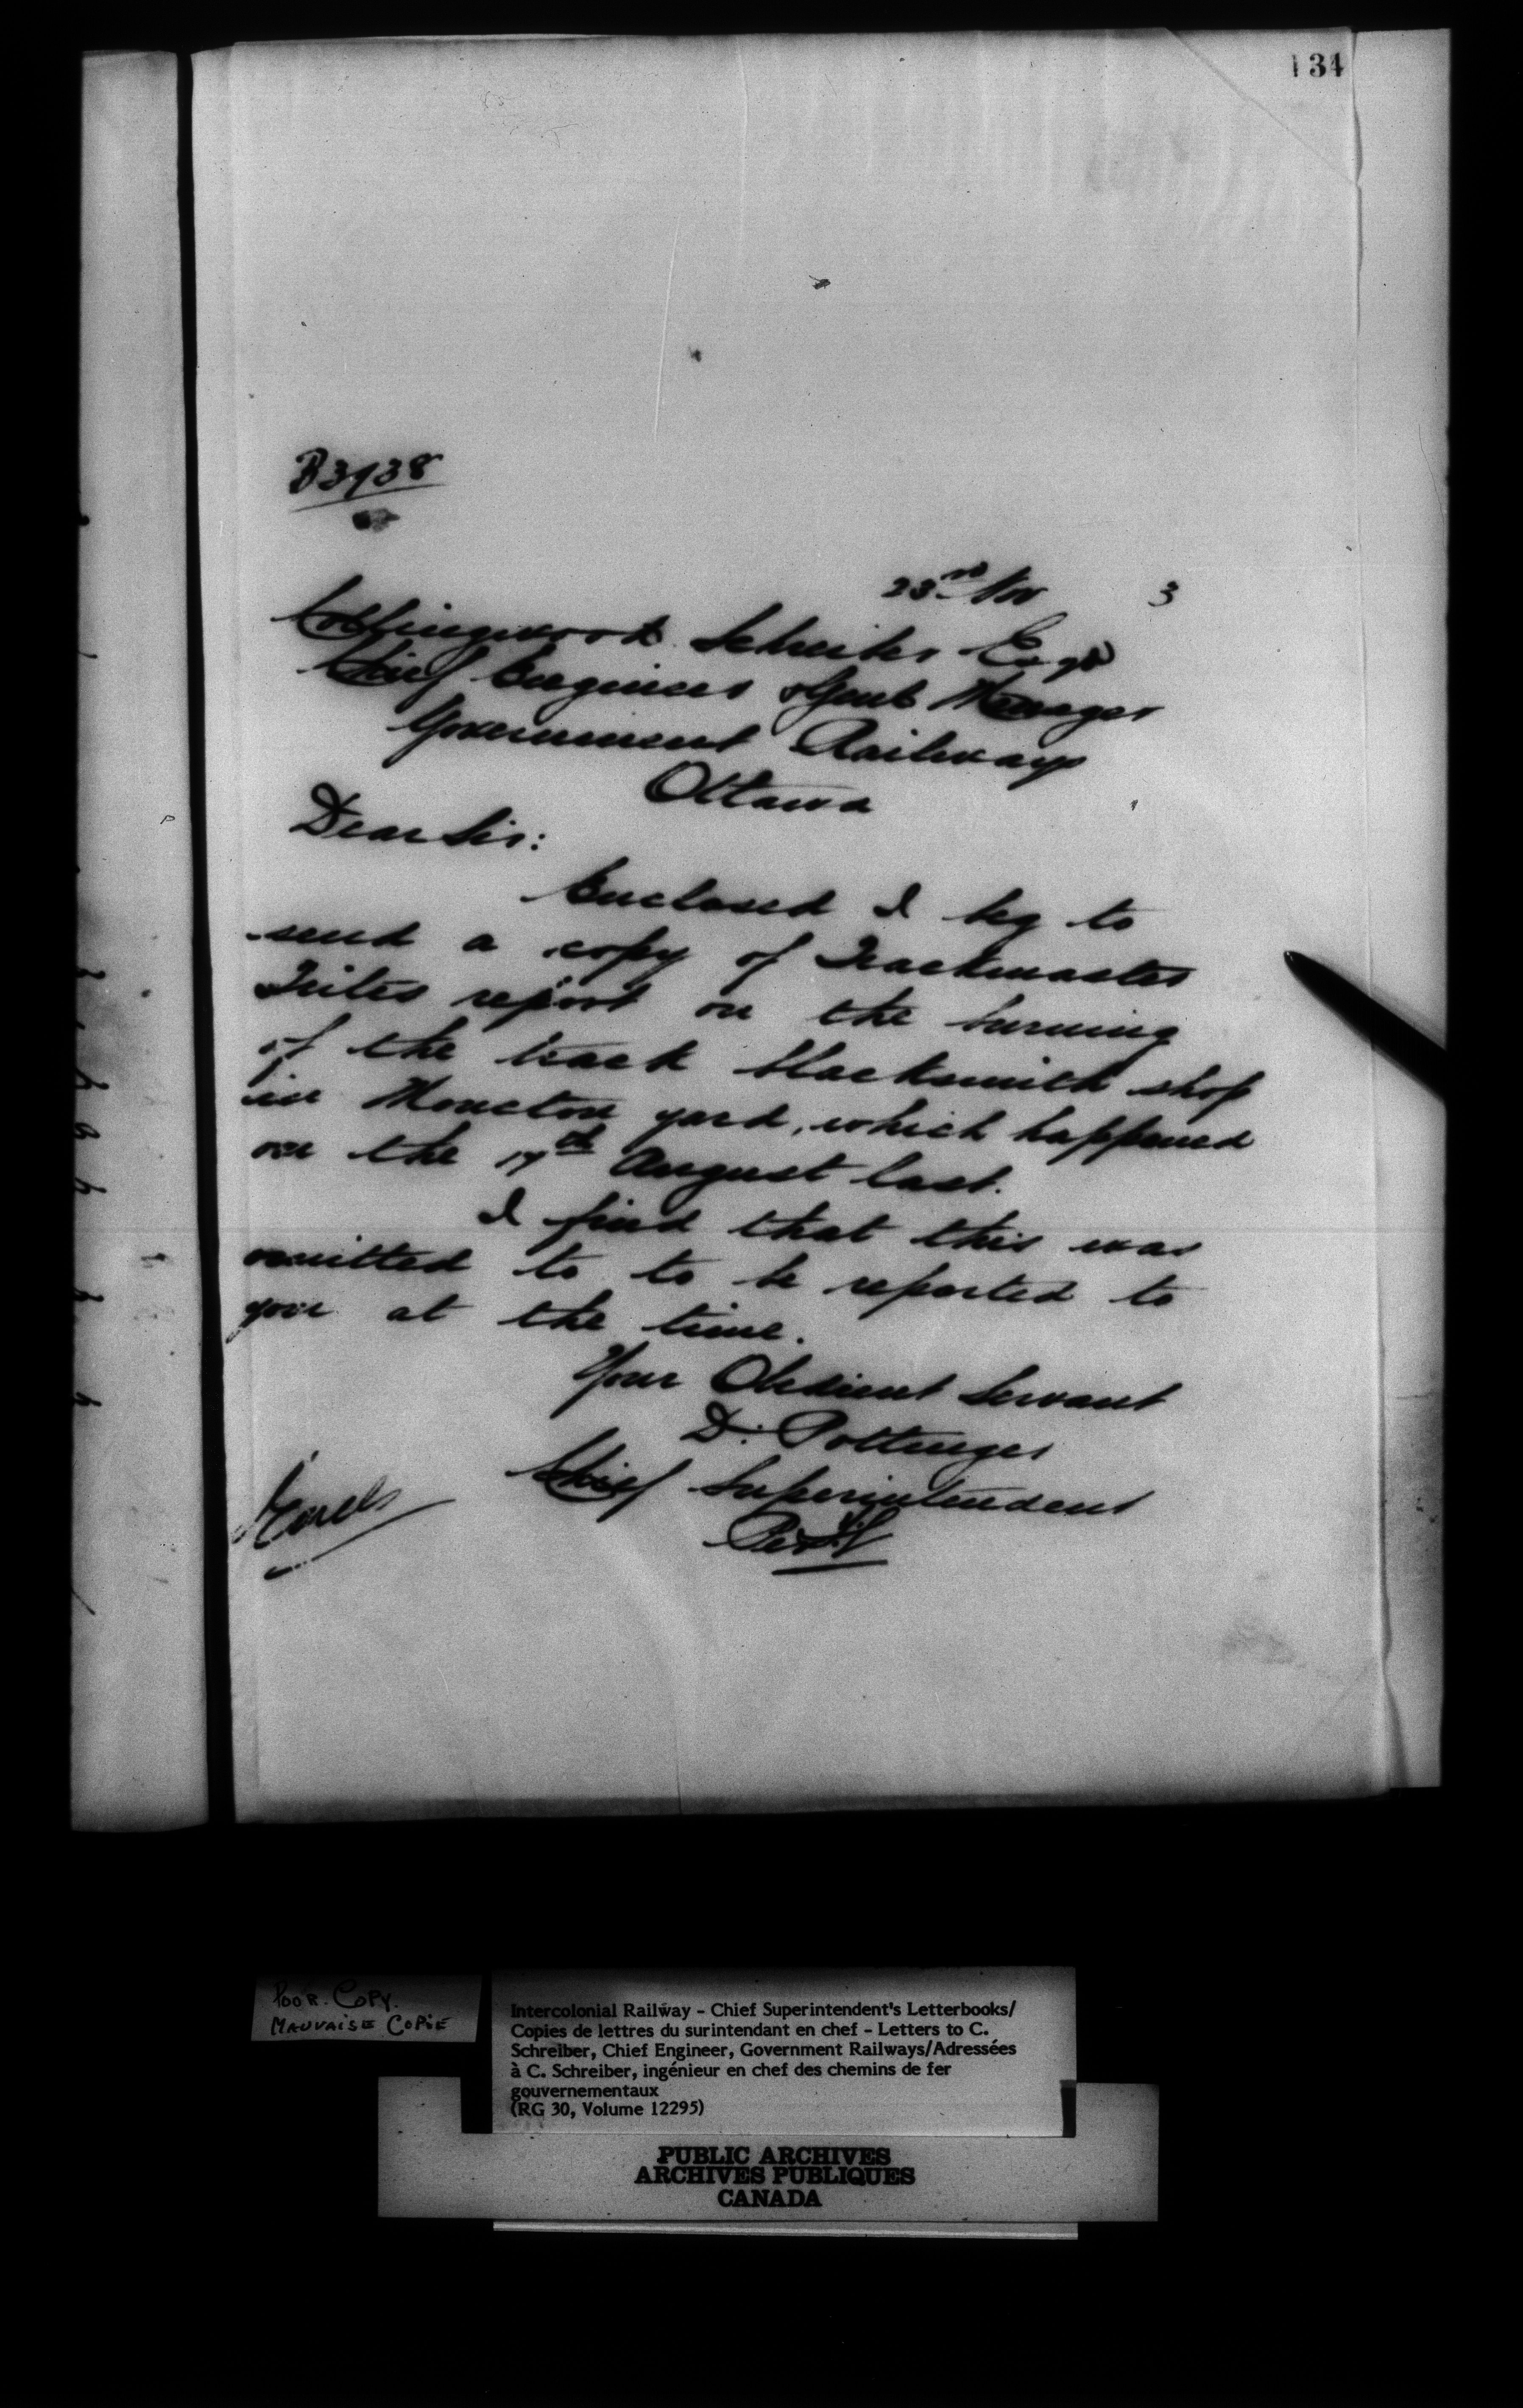 134
B3938
23rd Nov 3
Collingwood Schreiber Esqr
Chief Engineer & Genl Manager
Government Railways
Ottawa
Dear Sir:
Enclosed I beg to
send a copy of Trackmaster
Trites report on the burning
of the track blacksmith shop
in Moncton yard, which happened
on the 17th August last.
I find that this was
omitted to to be reported to
you at the time.
Your Obedient Servant
D. Pottinger
Chief Superintendent
POOR COPY.
MAUVAISE COPIE
Intercolonial Railway - Chief Superintendent's Letterbooks/
Copies de lettres du surintendant en chef - Letters to C.
Schreiber, Chief Engineer, Government Railways/Adressées
à C. Schreiber, ingénieur en chef des chemins de fer
gouvernementaux
(RG 30, Volume 12295)
PUBLIC ARCHIVES
ARCHIVES PUBLIQUES
CANADA